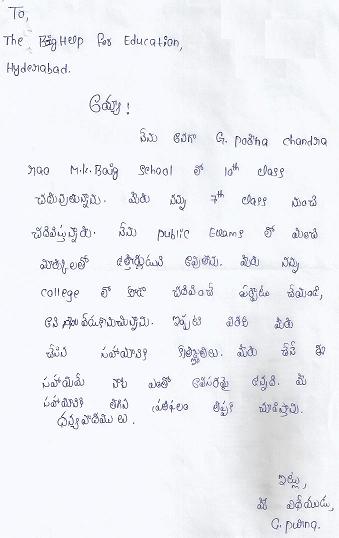 To,
The Big Help For Education,
Hyderabad.
అయ్యా !
నేను అనగా G. porna chandra
rao M.K. Baig School లో 10th class
చదువుతున్నాను. మీరు నన్ను 7th class నుంచి
చదివిస్తున్నారు. నేను public Exams లో మంచి
మార్కులతో ఉత్తీర్ణుడుని అవుతాను. మీరు నన్ను
college లో కూడా చదివించే ఏర్పాటు చేయండి,
అని వేడుకొనుచున్నాను. ఇప్పటి వరకు మీరు
చేసిన సహాయానికి కృతజ్ఞతలు. మీరు చేసే ఈ
సహాయమే నాకు ఎంతో అవసరమై ఉన్నది. మీ
సహాయానికి తగిన ప్రతిఫలం తప్పక చూపిస్తాను.
ధన్యవాదములు.
ఇట్లు,
మీ విధేయుడు,
G. purna.